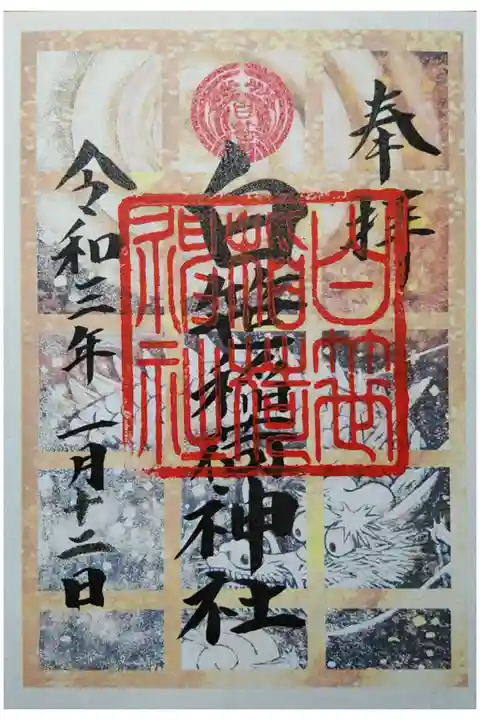 奉拝
白笹稲荷神社
令和三年 一月十二日
白笹
稲荷
神社